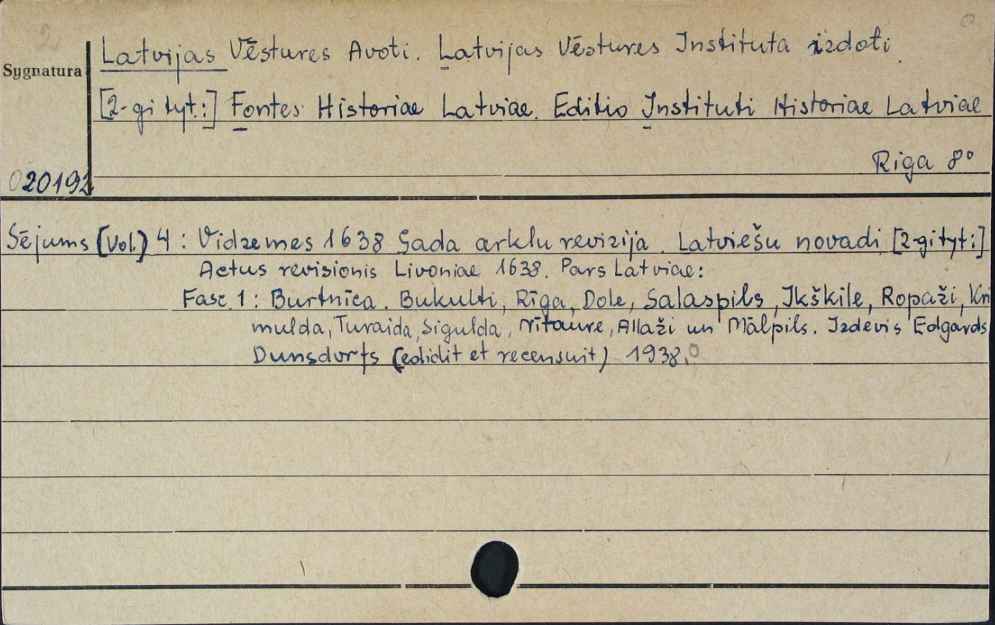 Latvijas Vēstures Avoti. Latvijas Vēstures Instituta izdoti.
Sygnatura
[2-gi tyt:] Fontes Historiae Latviae. Editio Instituti Historiae Latviae
Riga 8°
020192
Sējums (Vol.) 4: Vidzemes 1638 Gada arklu revizija. Latviešu novadi [2-gi tyt:]
Actus revisionis Livoniae 1638. Pars Latviae:
Fasc 1: Burtnīca. Bukulti, Rīga, Dole, Salaspils, Ikškile, Ropaži, Kri
mulda, Turaida, Sigulda, Nītaure, Allaži un Mālpils. Izdevis Edgards
Dunsdorfs (edidit et recensuit) 1938.